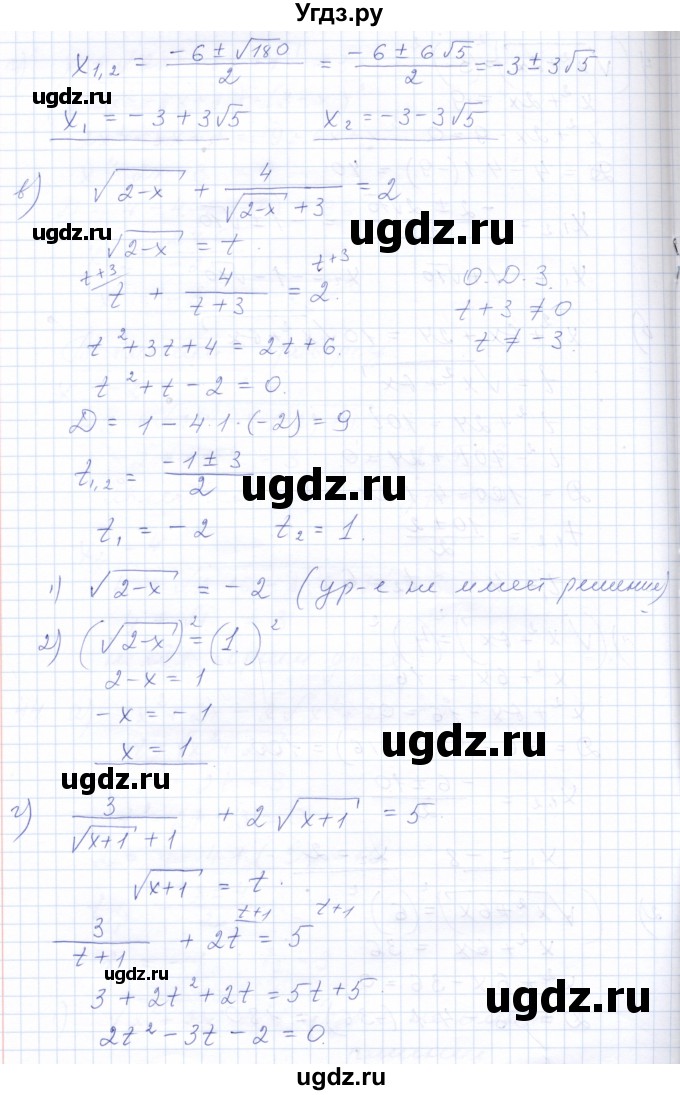 Угдз.ру
x₁,₂ = (-6 ± √180)/2 = (-6 ± 6√5)/2 = -3 ± 3√5
ugdz.ru
x₁ = -3 + 3√5    x₂ = -3 - 3√5
в) √(2-x) + 4/(√(2-x) + 3) = 2
ugdz.ru
ugdz.ru
√(2-x) = t.
t+3    t+3
t + 4/(t+3) = 2.    О.Д.З.
t + 3 ≠ 0
t² + 3t + 4 = 2t + 6.    t ≠ -3.
t² + t - 2 = 0.
D = 1 - 4·1·(-2) = 9
t₁,₂ = (-1 ± 3)/2
ugdz.ru
t₁ = -2    t₂ = 1.
1) √(2-x) = -2 (ур-е не имеет решение)
2) (√(2-x))² = (1.)²
2-x = 1
-x = -1
ugdz.ru
x = 1
ugdz.ru
г) 3/(√(x+1) + 1) + 2√(x+1) = 5
√(x+1) = t.
t+1    t+1
3/(t+1) + 2t = 5
ugdz.ru
3 + 2t² + 2t = 5t + 5
ugdz.ru
2t² - 3t - 2 = 0.
ugdz.ru